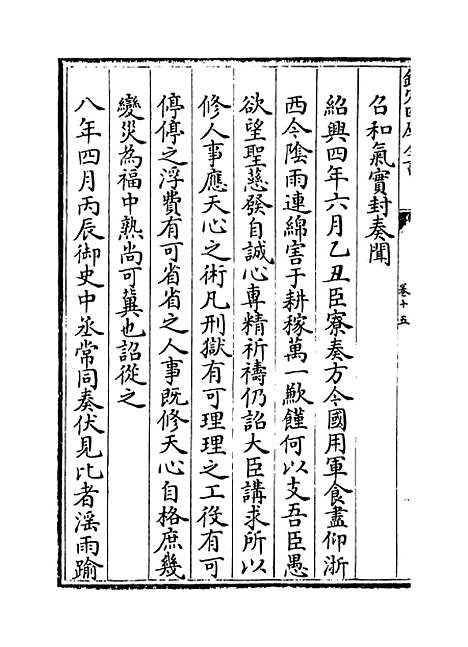 欽定四庫全書
卷十五
召和氣實封奏聞
紹興四年六月乙丑臣寮奏方今國用軍食盡仰浙
西今隂雨連綿害于耕稼萬一歉饉何以支吾臣愚
欲望聖慈發自誠心専精祈禱仍詔大臣講求所以
修人事應天心之術凡刑獄有可理理之工役有可
停停之浮費有可省省之人事既修天心自格庶幾
變災為福中熟尚可冀也詔從之
八年四月丙辰御史中丞常同奏伏見比者滛雨踰